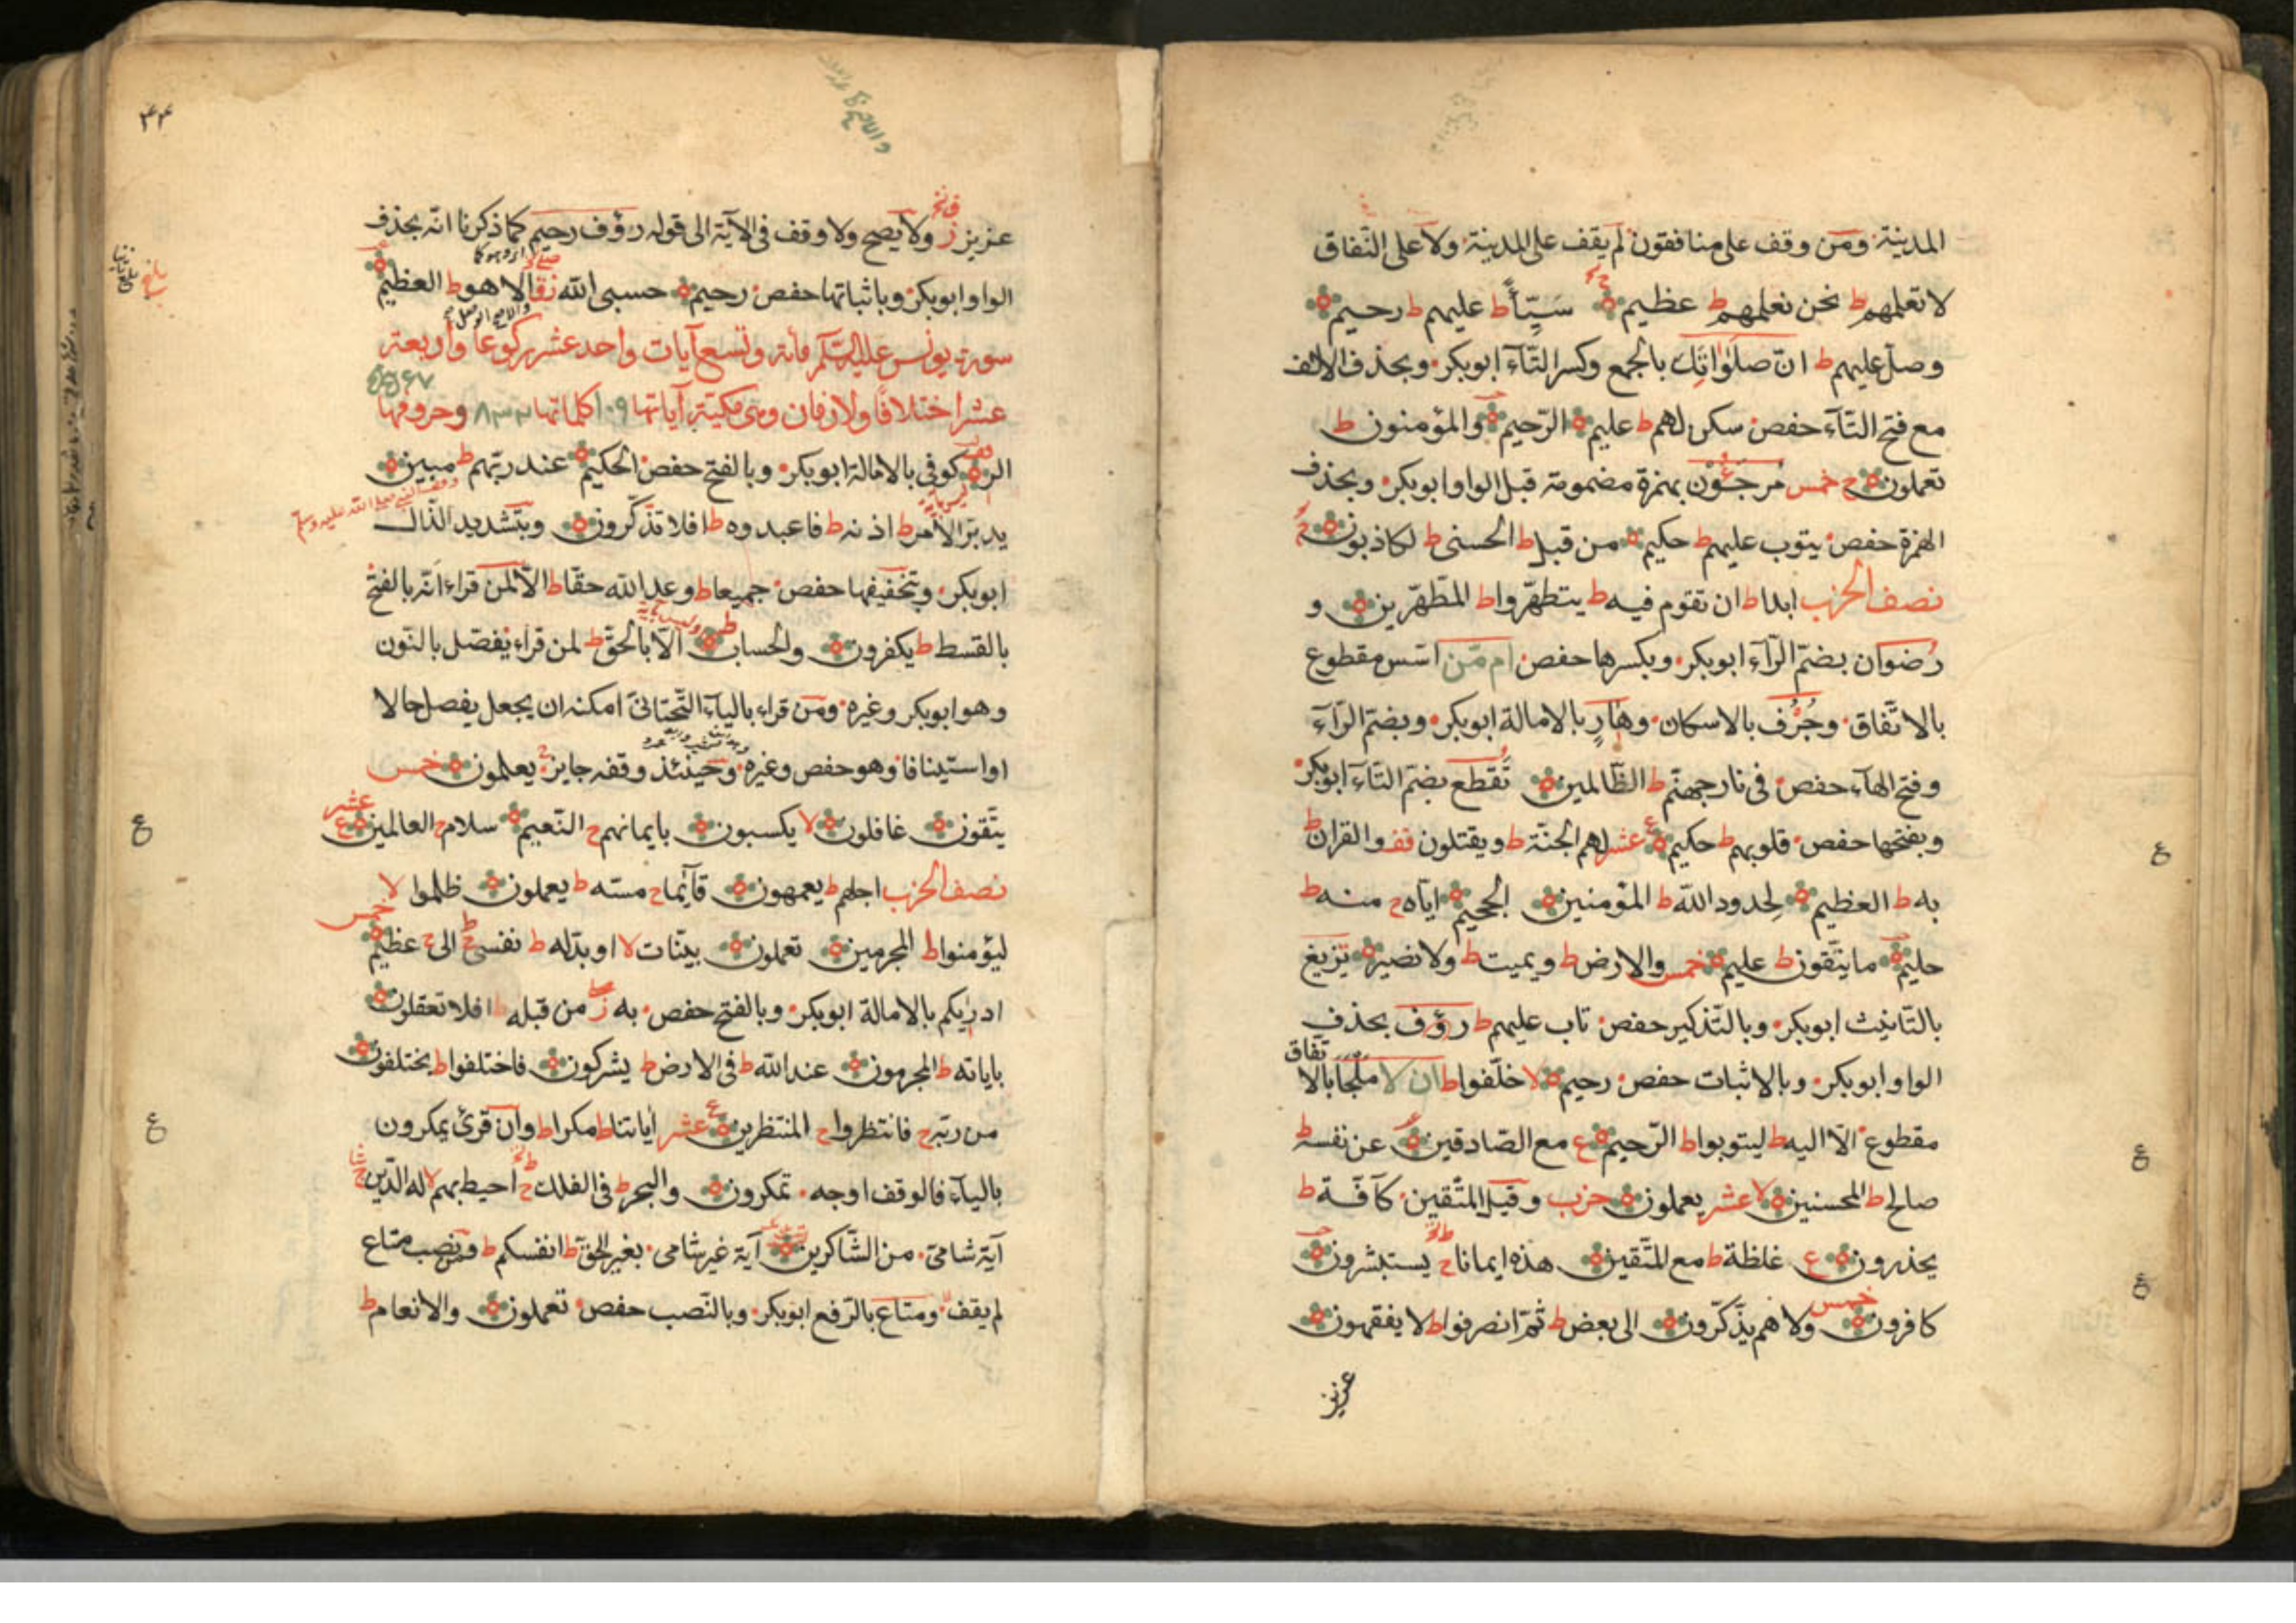 المدينة ومن وقف على منافقون لم يقف على المدينة ولا على النفاق
لا تعلمهم ط نحن نعلمهم ط عظيم سَيِّئاً ط عليهم ط رحيم
وصل عليهم ط انّ صلَوٰاتِك بالجمع وكسر التّاء ابوبكر وبحذف الالف
مع فتح التّاء حفص سكن لهم ط عليم الرّحيم والمؤمنون ط
تعملون ج خمس مُرجَئُون بهمزة مضمومة قبل الواو ابوبكر وبحذف
الهمزة حفص يتوب عليهم ط حكيم من قبل ط الحسنى ط لكاذبون
نصف الحزب ابدا ط ان تقوم فيه ط يتطهّروا ط المطّهّرين و
رُضوان بضمّ الرّاء ابوبكر وبكسرها حفص ام مّن اسّس مقطوع
بالاتّفاق وجُرْف بالاسكان وهارٍ بالامالة ابوبكر وبضمّ الرّاء
وفتح الهاء حفص فى نار جهنّم ط الظّالمين تُقطّع بضمّ التّاء ابوبكر
وبفتحها حفص قلوبهم ط حكيم ع عشر لهم الجنّة ط ويقتلون قف والقران ط
به ط العظيم لحدود الله ط المؤمنين الجحيم ايّاه ج منه ط
حليم ما يتّقون ط عليم خمس والارض ط ويميت ط ولا نصير تزيغ
بالتّانيث ابوبكر وبالتّذكير حفص تاب عليهم ط رؤف بحذف
الواو ابوبكر وبالاثبات حفص رحيم لا خلّفوا ط ان لا ملجأ بالاتّفاق
مقطوع الّا اليه ط ليتوبوا ط الرّحيم ع مع الصّادقين عن نفسه ط
صالح ط المحسنين لا عشر يعملون حزب وقيل المتّقين كآفّة ط
يحذرون ع غلظة ط مع المتّقين هذه ايمانا ج يستبشرون
كافرون خمس ولا هم يذّكّرون الى بعض ط ثمّ انصرفوا ط لا يفقهون
عزيز
٤٤
عزيز ز ولا يصح ولا وقف فى الآية الى قوله رؤف رحيم كما ذكرنا انّه بحذف
الواو ابوبكر وباثباتها حفص رحيم حسبى الله الا هو ط العظيم
سورة يونس عليه السّلام مأئة وتسع آيات واحد عشر ركوعا واربعة
عشر اختلافًا ولازمان وهى مكيّة آياتها ١٠٩ كلماتها ١٨٣٢ وحروفها
الر كوفى بالامالة ابوبكر وبالفتح حفص الحكيم عند ربّهم ط مبين
يدبّر الامر ط اذنه ط فاعبدوه ط افلا تذّكّرون وبتشديد الذّال
ابوبكر وبتخفيفها حفص جميعا ط وعد الله حقّا ط الّا لمن قراء انّه بالفتح
بالقسط ط يكفرون والحساب ط الّا بالحقّ ط لمن قراء نفصّل بالنّون
وهو ابوبكر وغيره ومن قراء بالياء التّحتانىّ امكنه ان يجعل يفصل حالا
او استينافا وهو حفص وغيره وحينئذ وقفه جايز يعلمون خمس
يتّقون غافلون لا يكسبون بايمانهم ج النّعيم سلام ج العالمين ع عشر
نصف الحزب اجلهم ط يعمهون قآئما ج مسّه ط يعملون ظلموا لا
ليؤمنوا ط المجرمين تعملون بيّنات لا او بدّله ط نفسى ج الىّ ج عظيم خمس
ادريكم بالامالة ابوبكر وبالفتح حفص به ز من قبله ط افلا تعقلون
باياته ط المجرمون عند الله ط فى الارض ط يشركون فاختلفوا ط يختلفون
من ربّه ج فانتظروا ج المنتظرين ع عشر اياتنا ط مكرا ط وان قرئ يمكرون
بالياء فالوقف اوجه تمكرون والبحر ط فى الفلك ج احيط بهم لا له الدّين
آية شامىّ من الشّاكرين آية غير شامى بغير الحقّ ط انفسكم ط ومن نصب متاع
لم يقف ومتاع بالرّفع ابوبكر وبالنّصب حفص تعملون والانعام ط
ع
ع
ع
ع
ع